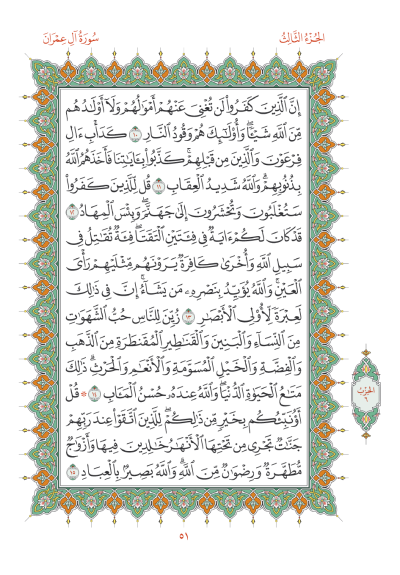 الجزء الثالث
سورة آل عمران
إِنَّ ٱلَّذِينَ كَفَرُوا۟ لَن تُغْنِىَ عَنْهُمْ أَمْوَٰلُهُمْ وَلَآ أَوْلَـٰدُهُم
مِّنَ ٱللَّهِ شَيْـًٔا ۖ وَأُو۟لَـٰٓئِكَ هُمْ وَقُودُ ٱلنَّارِ ١٠ كَدَأْبِ ءَالِ
فِرْعَوْنَ وَٱلَّذِينَ مِن قَبْلِهِمْ ۚ كَذَّبُوا۟ بِـَٔايَـٰتِنَا فَأَخَذَهُمُ ٱللَّهُ
بِذُنُوبِهِمْ ۗ وَٱللَّهُ شَدِيدُ ٱلْعِقَابِ ١١ قُل لِّلَّذِينَ كَفَرُوا۟
سَتُغْلَبُونَ وَتُحْشَرُونَ إِلَىٰ جَهَنَّمَ ۚ وَبِئْسَ ٱلْمِهَادُ ١٢
قَدْ كَانَ لَكُمْ ءَايَةٌ فِى فِئَتَيْنِ ٱلْتَقَتَا ۖ فِئَةٌ تُقَـٰتِلُ فِى
سَبِيلِ ٱللَّهِ وَأُخْرَىٰ كَافِرَةٌ يَرَوْنَهُم مِّثْلَيْهِمْ رَأْىَ
ٱلْعَيْنِ ۚ وَٱللَّهُ يُؤَيِّدُ بِنَصْرِهِۦ مَن يَشَآءُ ۗ إِنَّ فِى ذَٰلِكَ
لَعِبْرَةً لِّأُو۟لِى ٱلْأَبْصَـٰرِ ١٣ زُيِّنَ لِلنَّاسِ حُبُّ ٱلشَّهَوَٰتِ
مِنَ ٱلنِّسَآءِ وَٱلْبَنِينَ وَٱلْقَنَـٰطِيرِ ٱلْمُقَنطَرَةِ مِنَ ٱلذَّهَبِ
وَٱلْفِضَّةِ وَٱلْخَيْلِ ٱلْمُسَوَّمَةِ وَٱلْأَنْعَـٰمِ وَٱلْحَرْثِ ۗ ذَٰلِكَ
مَتَـٰعُ ٱلْحَيَوٰةِ ٱلدُّنْيَا ۖ وَٱللَّهُ عِندَهُۥ حُسْنُ ٱلْمَـَٔابِ ١٤ ۞ قُلْ
أَؤُنَبِّئُكُم بِخَيْرٍ مِّن ذَٰلِكُمْ ۚ لِلَّذِينَ ٱتَّقَوْا۟ عِندَ رَبِّهِمْ
جَنَّـٰتٌ تَجْرِى مِن تَحْتِهَا ٱلْأَنْهَـٰرُ خَـٰلِدِينَ فِيهَا وَأَزْوَٰجٌ
مُّطَهَّرَةٌ وَرِضْوَٰنٌ مِّنَ ٱللَّهِ ۗ وَٱللَّهُ بَصِيرٌۢ بِٱلْعِبَادِ ١٥
الحزب
٦
٥١